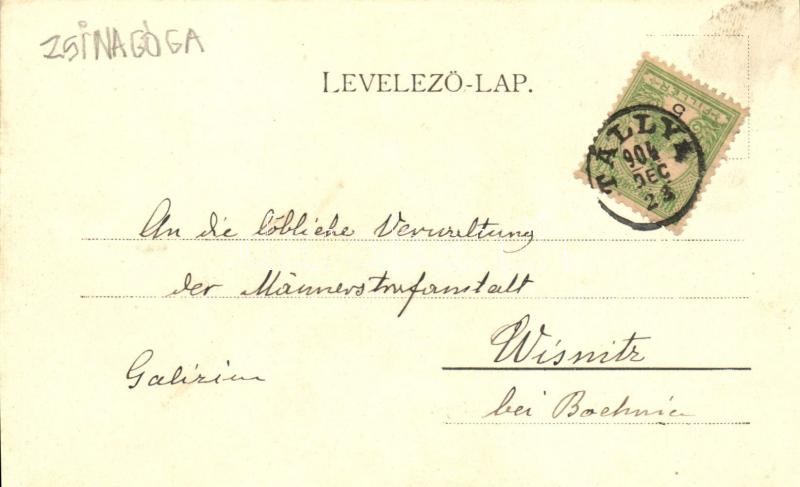 ZSINAGÓGA
LEVELEZŐ-LAP.
5
FILLÉR
TÁLLYA
904
DEC
23
An die löbliche Verwaltung
der Männerstrafanstalt
Wisnitz
Galizien
bei Bochnia